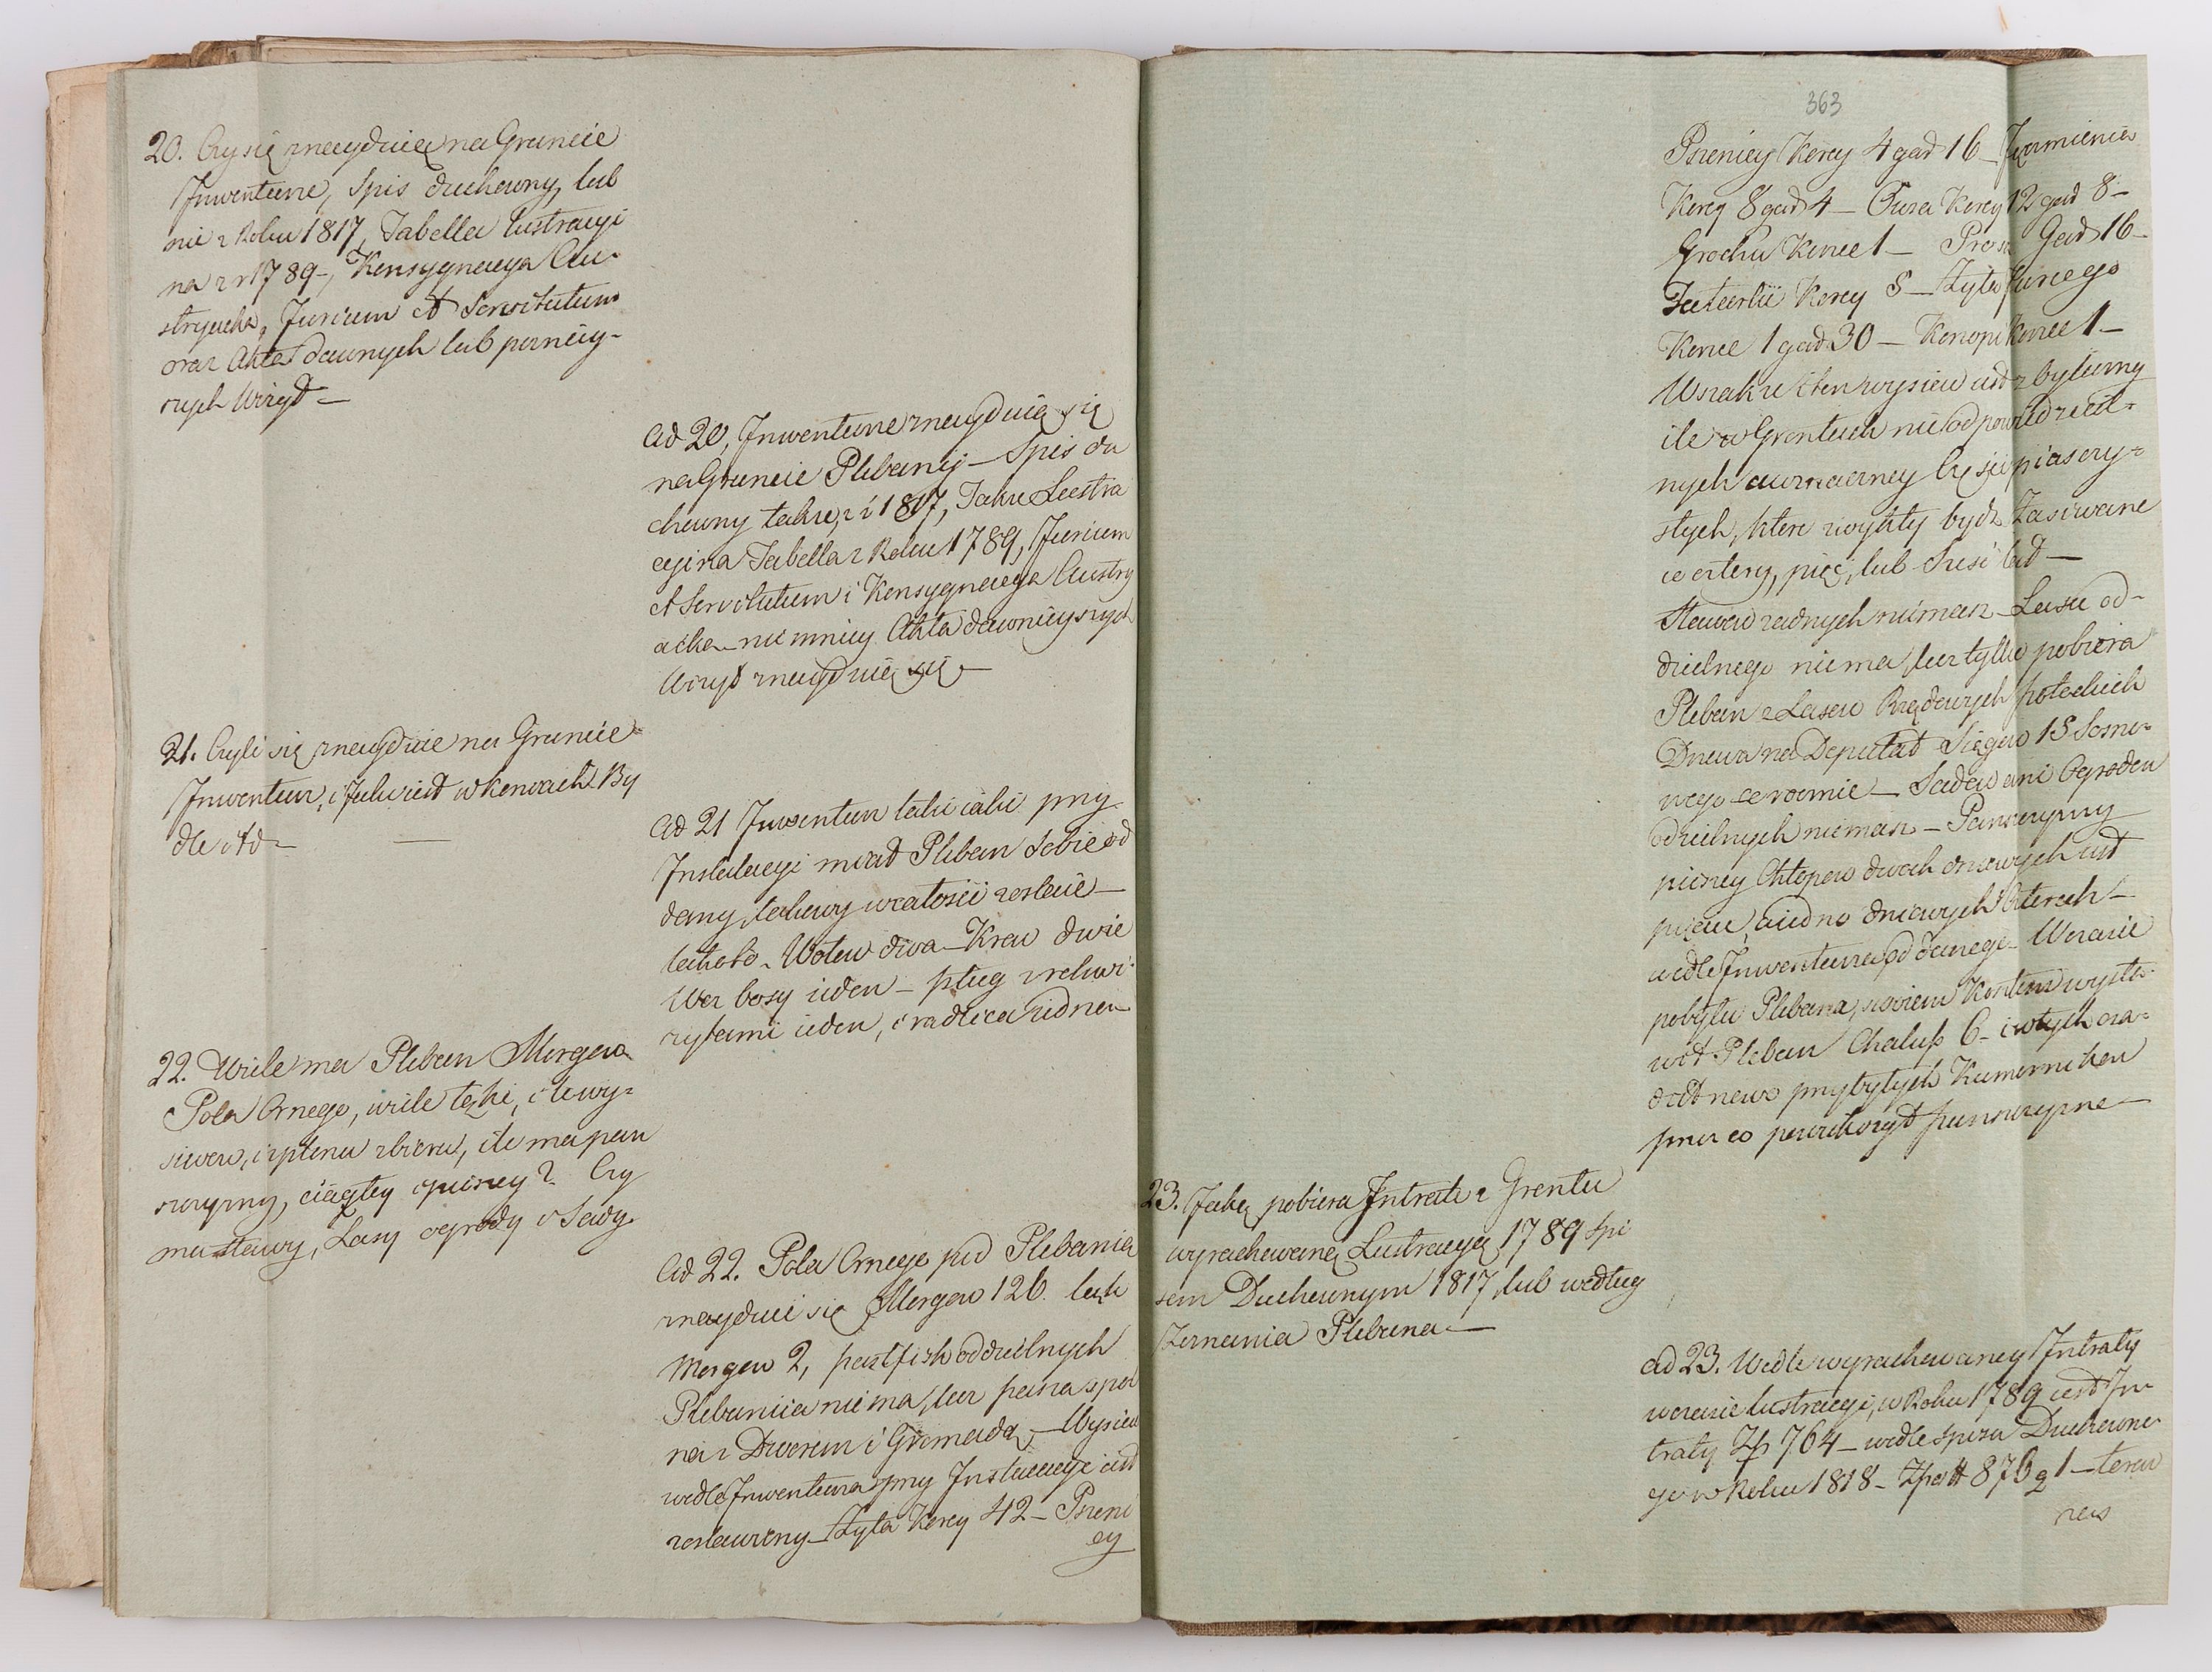 20. Czy się znayduią na Gruncie
Inwentarze, Spis duchowny, lub
nie z Roku 1817, Tabella lustracyi
na z r 1789 -, Konsygnacya Au-
stryacka, Jurium et Servitutum
oraz Akta dawnych lub pozniey-
szych Wizyt -
ad 20, Inwentarze znayduią się
na Gruncie Plebanij - Spis du
chowny także z r 1817, Takze Lustra
cyina Tabella z Roku 1789, Jurium
et Servitutum i Konsygnacya Austry
acka - nie mniey Akta dawnieyszych
Wizyt znayduią się -
21. Czyli się znayduie na Gruncie
Inwentarz, i Jaki iest w koniach By
dle etc -
ad 21 Inwentarz taki iaki przy
Instalacyi miał Pleban sobie od
dany, takowy w całości zostaie -
tak oto - Wołów dwa - Krów dwie
Woz bosy ieden - pług z rekwi-
zytami ieden, i radlica iedna -
22. Wiele ma Pleban Morgow
Pola Ornego, wiele łąki, i le wy-
siewu, i iplonu zbioru, ile ma pan
szczyzny, ciągłey i pieszey? Czy
ma stawy, Lasy ogrody i Sady.
ad 22. Pola Ornego pod Plebanią
znayduie się Morgow 126. łąk
Morgow 2, pastfisk oddzielnych
Plebaniia nie ma, lecz pasza spol
na z Dworem i Gromadą, - Wysiew
wedle Inwentarza przy Instalacyi iest
zostawiony - Zyta Korcy 42 - Pszeni
cy
363
Pszenicy Korcy 4 gar 16 - Jęczmienia
Korcy 8 gar 4 - Owsa Korcy 12 gar 8 -
Grochu Korzec 1 - Prosa Gar 16 -
Tatarki Korcy 8 - Zyta Jarego
Korzec 1 gar 30 - Konopi Korzec 1 -
Wszakze i ten wysiew iest zbytowny
ile w Gruntach nieodpowiedzial-
nych a w znaczney Części piasczy-
stych, ktore zwykły bydz Zasiwane
w cztery, pięć, lub Sześć lat -
Stawow żadnych niemasz - Lasu od-
dzielnego nie ma, lecz tylko pobiera
Pleban z Lasow Rządowych Potockich
Drzewa na Deputat Siągow 15 Sosno-
wego corocznie - Sadow ani Ogrodow
oddzielnych niemasz - Panszczyzny
pieszey Chłopow dwoch dniowych iest
pięciu, a iedno dniowych Czterech -
wedle Inwentarza oddanego - W czasie
pobytu Plebana, swoiem Kosztem wysta-
wił Pleban Chałup 6 - i w tych osa-
dził nowo przybyłych Kumornikow
przez co powiekszył panszczyzne -
23. Jaką pobiera Intratę z Gruntu
wyrachowaną Lustracyą 1789 Spi
sem Duchownym 1817, lub według
Zeznania Plebana -
ad 23. Wedle wyrachowaney Intraty
w czasie lustracyi, w Roku 1789 iest In
traty Zł 764 - wedle Spisu Duchowne
go w Roku 1818 - Zł 876 g 1 - teraz